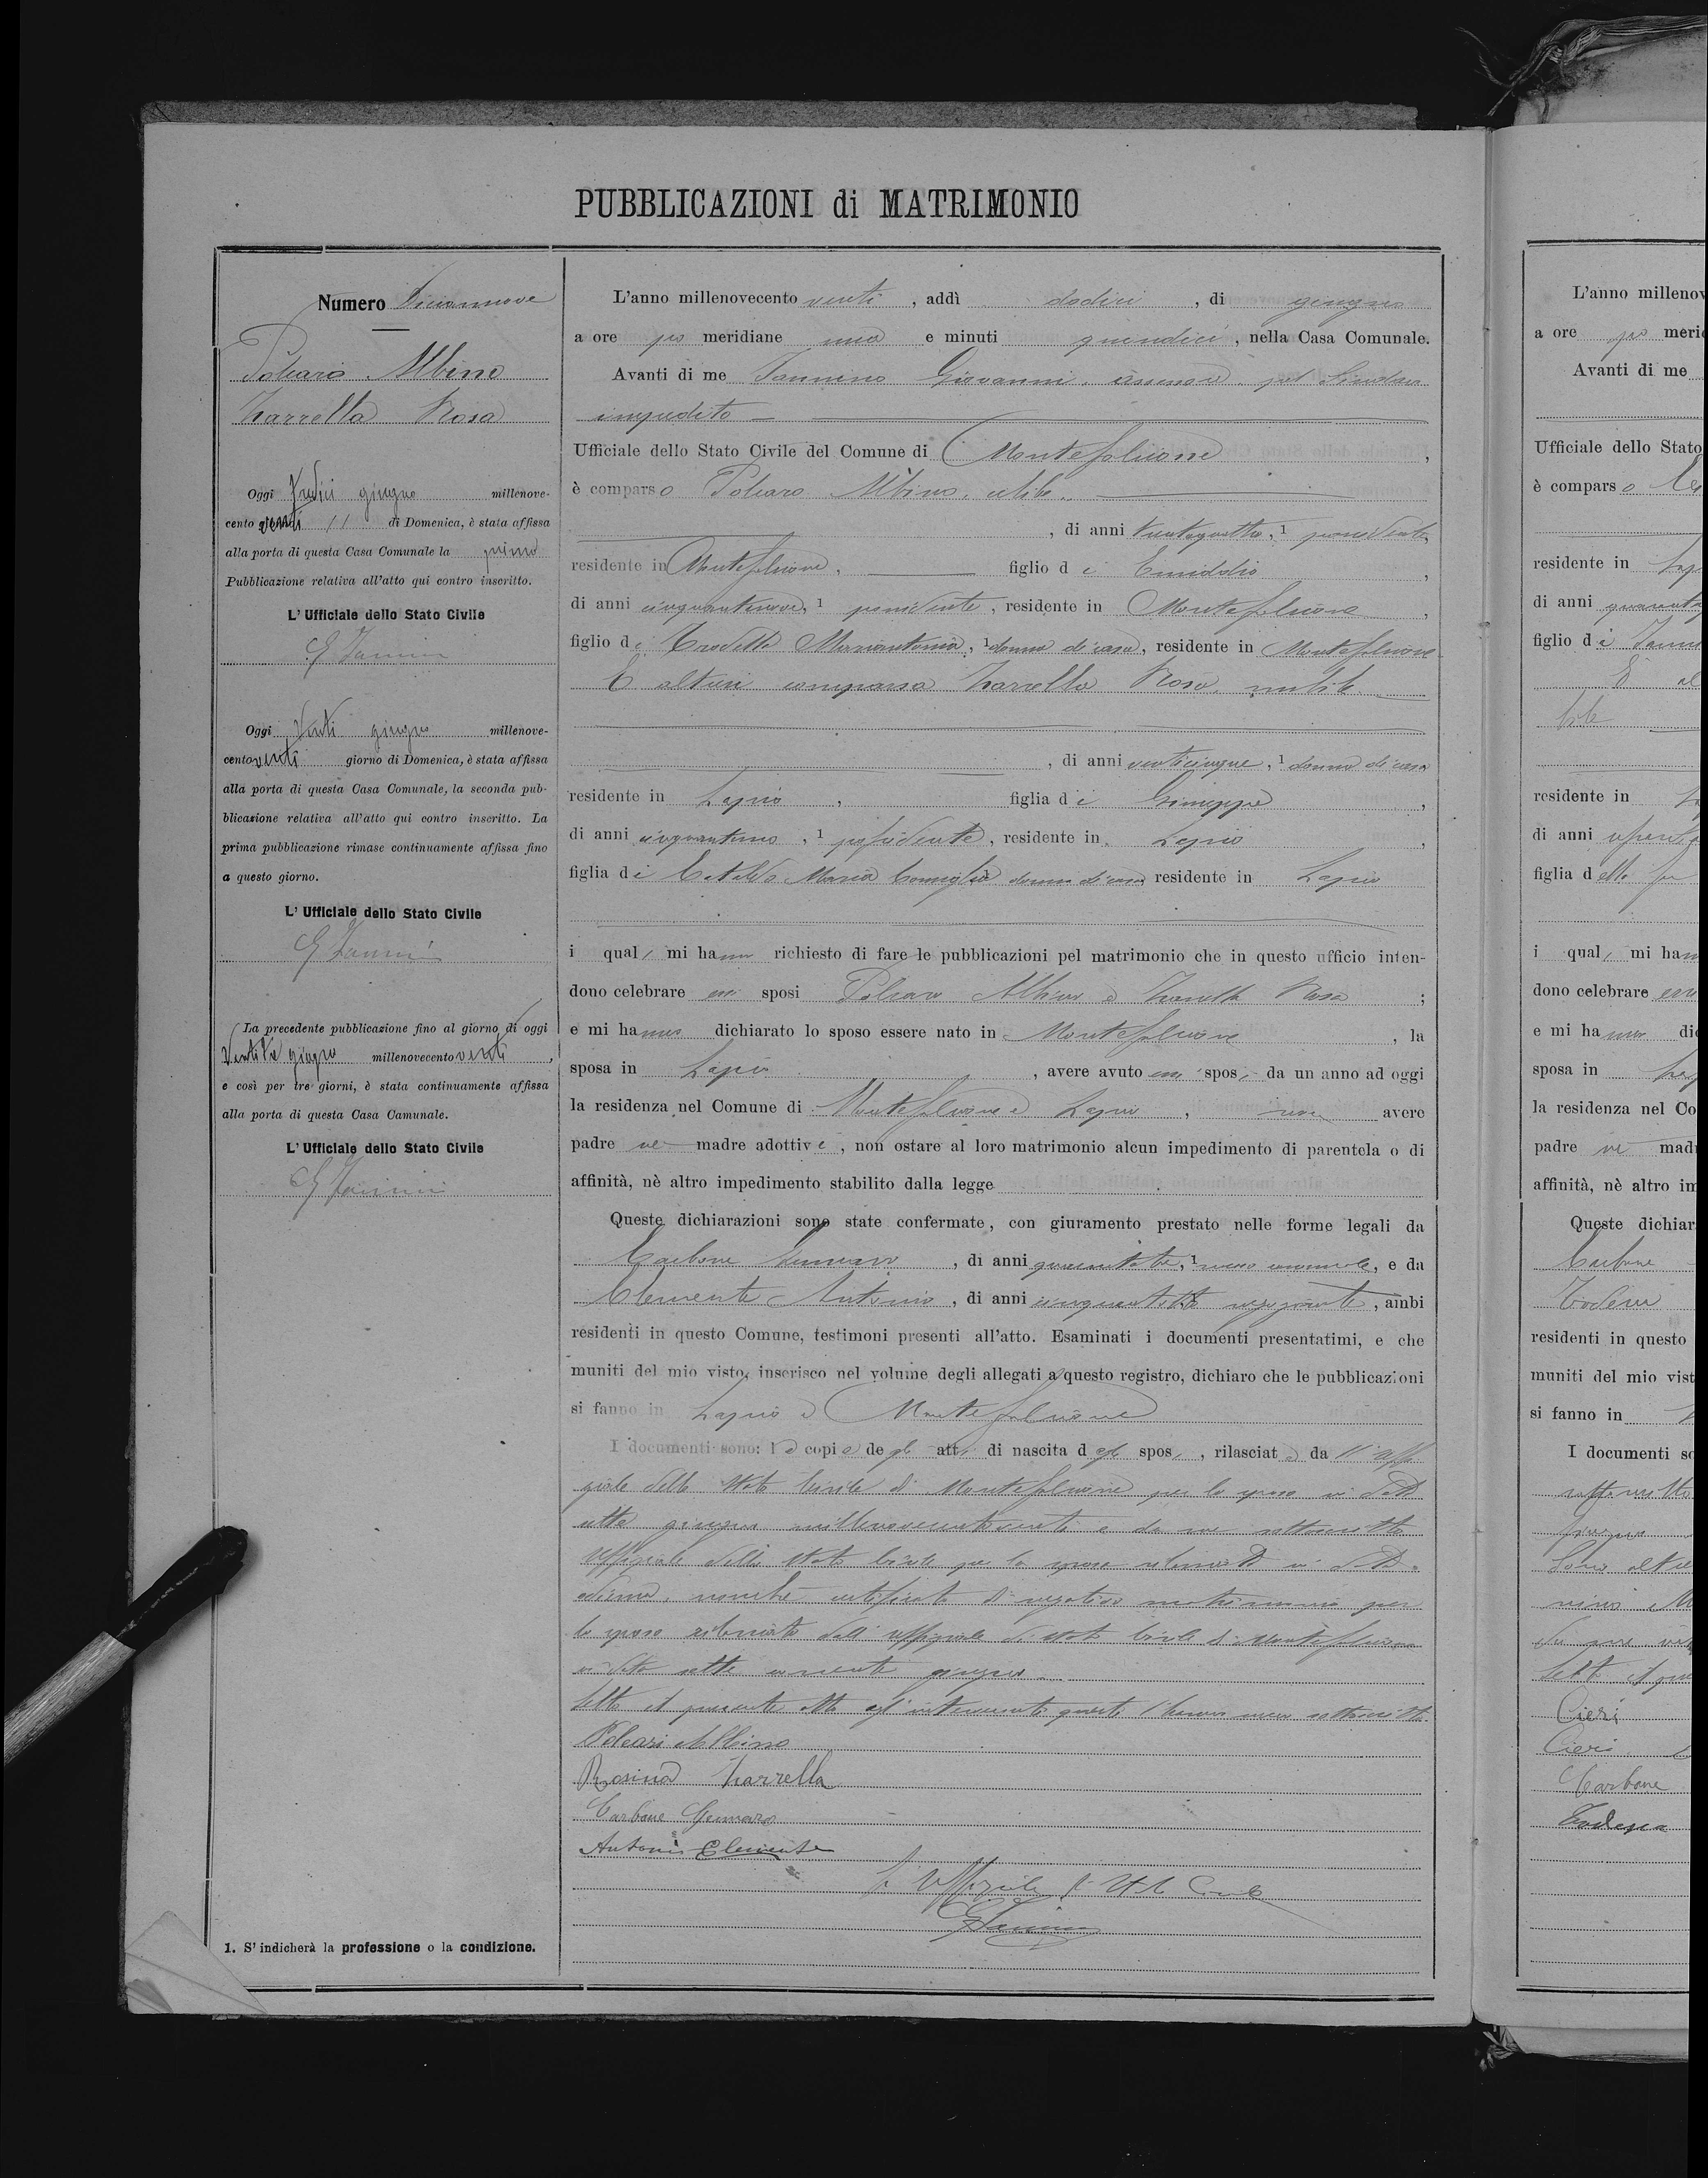 PUBBLICAZIONI di MATRIMONIO
Numero Diciannove
Polcaro Albino
Zarrella Rosa
Oggi tredici giugno millenove-
cento venti di Domenica, è stata affissa
alla porta di questa Casa Comunale la prima
Pubblicazione relativa all'atto qui contro inscritto.
L'Ufficiale dello Stato Civile
Oggi Venti giugno millenove-
cento venti giorno di Domenica, è stata affissa
alla porta di questa Casa Comunale, la seconda pub-
blicazione relativa all'atto qui contro inscritto. La
prima pubblicazione rimase continuamente affissa fino
a questo giorno.
L'Ufficiale dello Stato Civile
La precedente pubblicazione fino al giorno di oggi
Ventitre giugno millenovecento venti,
e così per tre giorni, è stata continuamente affissa
alla porta di questa Casa Camunale.
L'Ufficiale dello Stato Civile
1. S'indicherà la professione o la condizione.
L'anno millenovecento venti, addì dodici, di giugno
a ore po meridiane una e minuti quindici, nella Casa Comunale.
Avanti di me Giovanni, assessore pel Sindaco
impedito
Ufficiale dello Stato Civile del Comune di Montefalcione,
è comparso Polcaro Albino, celibe
, di anni trentaquattro, 1 possidente,
residente in Montefalcione, figlio di Emiddio,
di anni 1 possidente, residente in Montefalcione,
figlio di Mariantonia, 1 donna di casa, residente in Montefalcione
E altresì comparsa Zarrella Rosa, nubile
, di anni venticinque, 1 donna di casa
residente in Lapio, figlia di Giuseppe,
di anni cinquantuno, 1 possidente, residente in Lapio,
figlia di Cataldo Maria donna di casa residente in Lapio
i quali mi hanno richiesto di fare le pubblicazioni pel matrimonio che in questo ufficio inten-
dono celebrare essi sposi Polcaro Albino e Zarrella Rosa;
e mi hanno dichiarato lo sposo essere nato in Montefalcione, la
sposa in Lapio, avere avuto essi sposi da un anno ad oggi
la residenza nel Comune di Montefalcione e Lapio, non avere
padre ne madre adottivi, non ostare al loro matrimonio alcun impedimento di parentela o di
affinità, nè altro impedimento stabilito dalla legge
Queste dichiarazioni sono state confermate, con giuramento prestato nelle forme legali da
Carbone Gennaro, di anni quarantatre, 1 messo comunale, e da
Clemente Antonio, di anni negoziante, ambi
residenti in questo Comune, testimoni presenti all'atto. Esaminati i documenti presentatimi, e che
muniti del mio visto, inserisco nel volume degli allegati a questo registro, dichiaro che le pubblicazioni
si fanno in Lapio e Montefalcione
I documenti sono: le copie degli atti di nascita degli sposi, rilasciate dall'uffi
ziale dello Stato Civile di Montefalcione per lo sposo in data
sette giugno millenovecentoventi e da me sottoscritto
Uffiziale dello Stato Civile per la sposa rilasciata in data
odierna, nonchè certificato di negativo matrimonio per
lo sposo rilasciato dall'uffiziale di Stato Civile di Montefalcione
in data sette corrente giugno.
Letto il presente atto agli intervenuti questi l'hanno meco sottoscritto
Polcari Albino
Rosina Zarrella
Carbone Gennaro
Antonio Clemente
L'Uffiziale di Stato Civile
L'anno millenov
a ore po meri
Avanti di me
Ufficiale dello Stato
è comparso
residente in Lap
di anni quaranta
figlio di
E al
residente in
di anni
figlia della fu
i quali mi han
dono celebrare essi
e mi hanno di
sposa in Lap
la residenza nel Co
padre ne mad
affinità, nè altro im
Queste dichiar
Carbone
residenti in questo
muniti del mio vist
si fanno in
I documenti so
sottoscritto
giugno
Sono altre
Cieri
Cieri
Carbone
Todesca